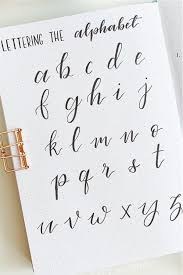 LETTERING THE alphabet
a b c d e
f g h i j
k l m n o
p q r s t
u v w x y z